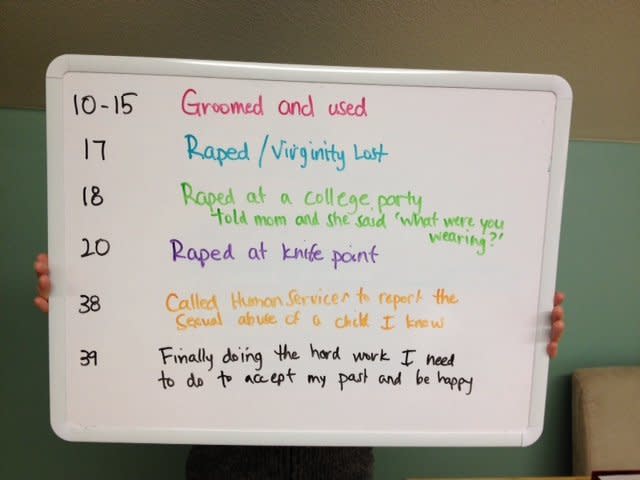 10-15 Groomed and used
17 Raped / Virginity Lost
18 Raped at a college party
told mom and she said 'what were you
wearing?'
20 Raped at knife point
38 Called Human Services to report the
Sexual abuse of a child I know
39 Finally doing the hard work I need
to do to accept my past and be happy